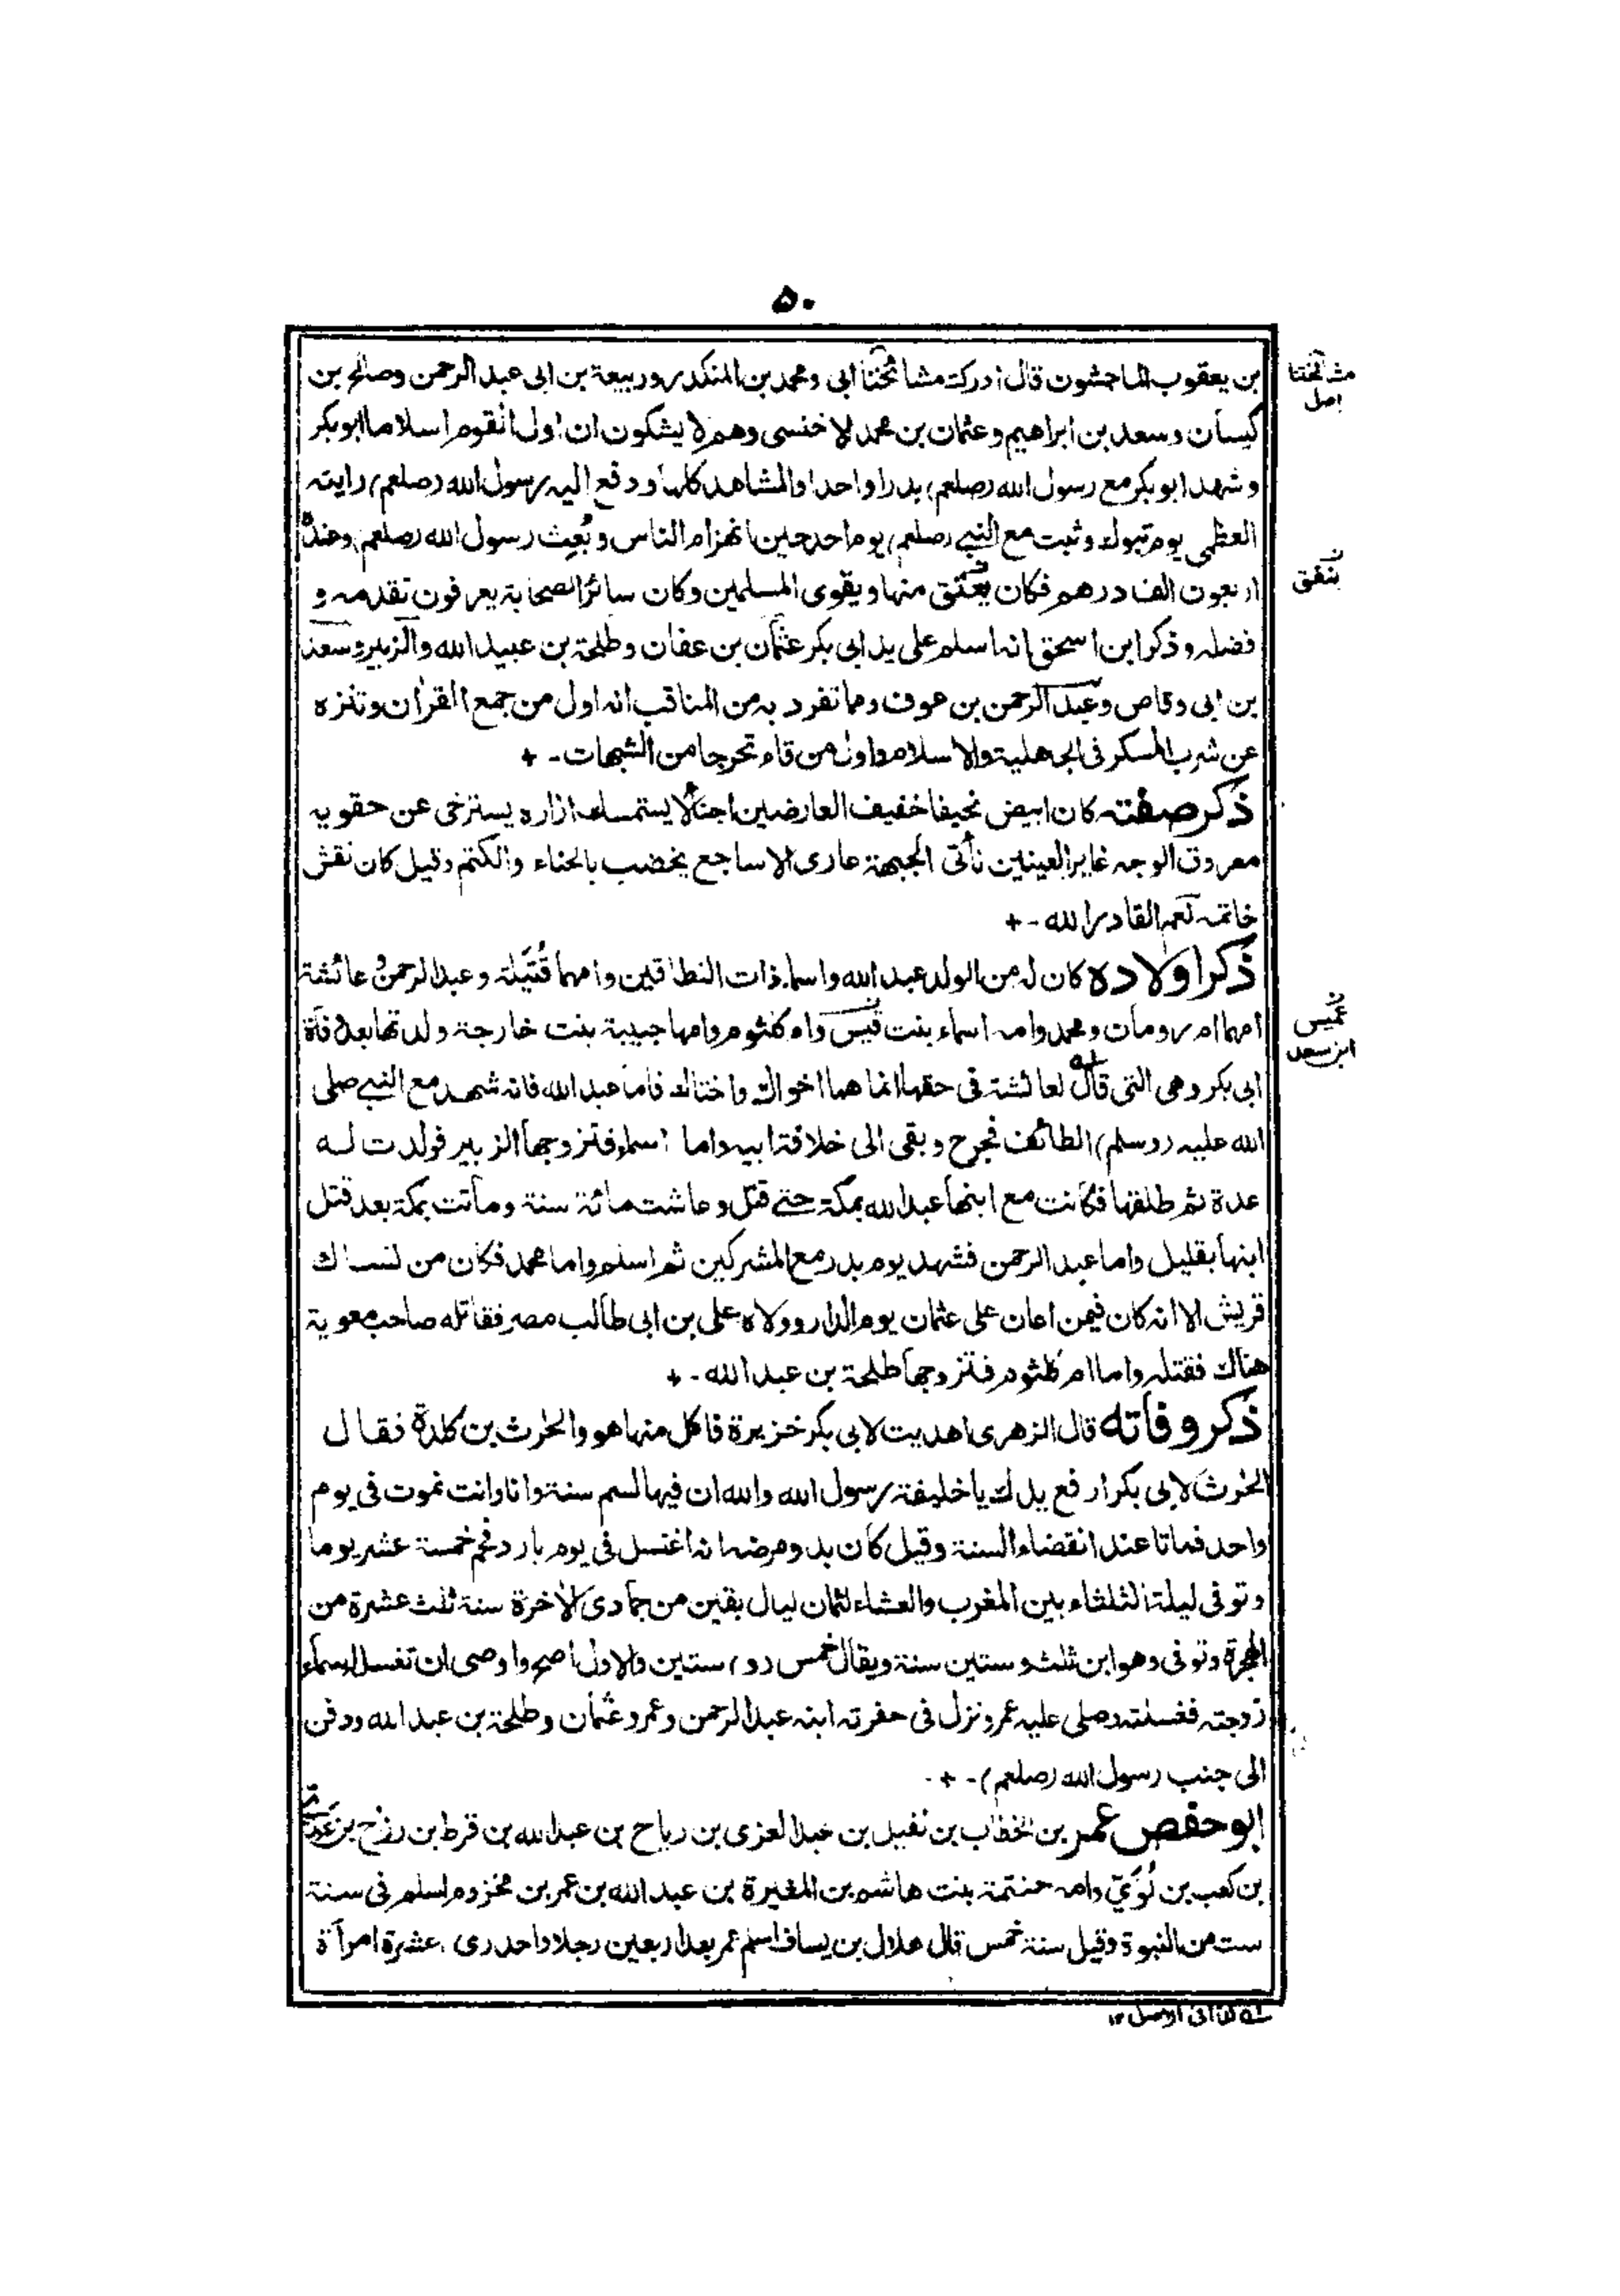 ۵۰
بن يعقوب الماجشون قال ادركت مشائخنا ابى ومحمد بن المنكدر وربيعة بن ابى عبد الرحمن وصالح بن
كيسان وسعد بن ابراهيم وعثمان بن محمد الاخنسى وهم لا يشكون ان اول القوم اسلاما ابو بكر
وشهد ابو بكر مع رسول الله (صلعم) بدرا واحدا والمشاهد كلها ودفع اليه رسول الله (صلعم) رايته
العظمى يوم تبوك وثبت مع النبى (صلعم) يوم احد حين انهزام الناس وبُعِث رسول الله (صلعم) وعنده
اربعون الف درهم فكان يعتق منها ويقوى المسلمين وكان سائر الصحابة يعرفون تقدمه و
فضله وذكر ابن اسحق انه اسلم على يد ابى بكر عثمان بن عفان وطلحة بن عبيد الله والزبير وسعد
بن ابى وقاص وعبد الرحمن بن عوف ومما تفرد به من المناقب انه اول من جمع القرأن وتنزه
عن شرب المسكر فى الجهلية والاسلام واول من قاء تحرجا من الشبهات -+
ذكر صفته كان ابيض نحيفا خفيف العارضين اجنأ لا يستمسك ازاره يسترخى عن حقويه
معروق الوجه غاير العينين ناتى الجبهة عارى الاساجع يخضب بالحناء والكتم وقيل كان نقش
خاتمه نعم القادر الله -+
ذكر اولاده كان له من الولد عبد الله واسماء ذات النطاقين وامهما قُتَيلة وعبد الرحمن وعائشة
امهما ام رومان ومحمد وامه اسماء بنت قيس وام كلثوم وامها حبيبة بنت خارجة ولدتها بعد وفاة
ابى بكر وهى التى قال له لعائشة فى حقها انما هما اخواك واختاك فاما عبد الله فانه شهد مع النبى صلى
الله عليه (وسلم) الطائف فجرح وبقى الى خلافة ابيه واما اسماء فتزوجها الزبير فولدت له
عدة ثم طلقها فكانت مع ابنها عبد الله بمكة حتى قتل وعاشت مائة سنة وماتت بمكة بعد قتل
ابنها بقليل واما عبد الرحمن فشهد يوم بدر مع المشركين ثم اسلم واما محمد فكان من نساك
قريش الا انه كان فيمن اعان على عثمان يوم الدار وولاه على بن ابى طالب مصر فقاتله صاحب معوية
هناك فقتله واما ام كلثوم فتزوجها طلحة بن عبد الله -+
ذكر وفاته قال الزهرى اهديت لابى بكر خزيرة فاكل منها هو والحرث بن كلدة فقال
الحرث لابى بكر ارفع يدك يا خليفة رسول الله والله ان فيها السم سنة وانا وانت نموت فى يوم
واحد فماتا عند انقضاء السنة وقيل كان بدو مرضه انه اغتسل فى يوم بارد فحم خمسة عشر يوما
وتوفى ليلة الثلثاء بين المغرب والعشاء لثمان ليال بقين من جمادى الاخرة سنة ثلث عشرة من
الهجرة وتوفى وهو ابن ثلث وستين سنة ويقال خمس (و) ستين والاول اصح واوصى ان تغسله اسماء
زوجته فغسلته وصلى عليه عمر ونزل فى حفرته ابنه عبد الرحمن وعمر وعثمان وطلحة بن عبد الله ودفن
الى جنب رسول الله (صلعم) -+-
ابو حفص عمر بن الخطاب بن نفيل بن عبد العزى بن رياح بن عبد الله بن قرط بن رزاح بن عدى
بن كعب بن لُؤَىّ وامه حنتمة بنت هاشم بن المغيرة بن عبد الله بن عمر بن مخزوم اسلم فى سنة
ست من النبوة وقيل سنة خمس قال هلال بن يساف اسلم عمر بعد اربعين رجلا واحدى عشرة امرأة
مشائخنا
اصل
ينفق
عميس
ابن سعد